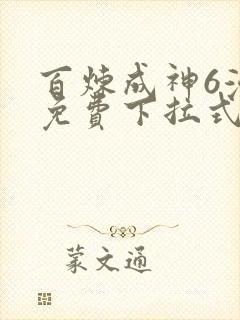 百炼成神6
免费下拉式
蒙文通